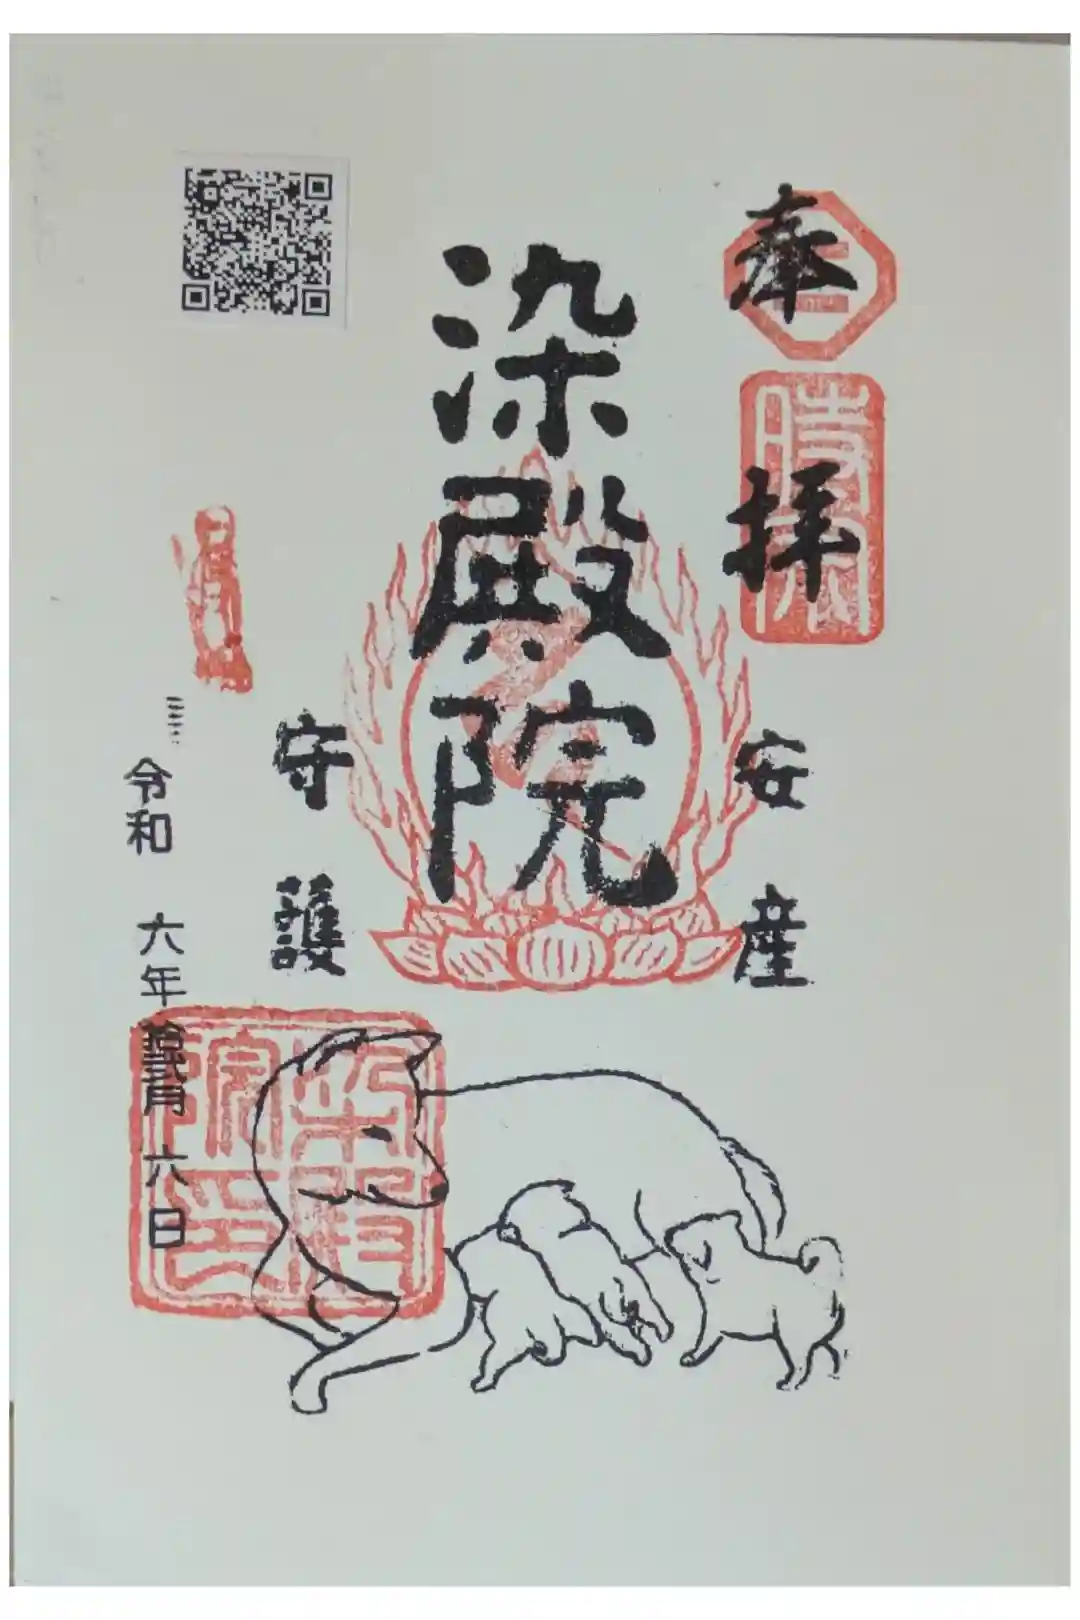 奉拝
安産
染殿院
守護
令和 六年 拾弐月 六日
染殿院印